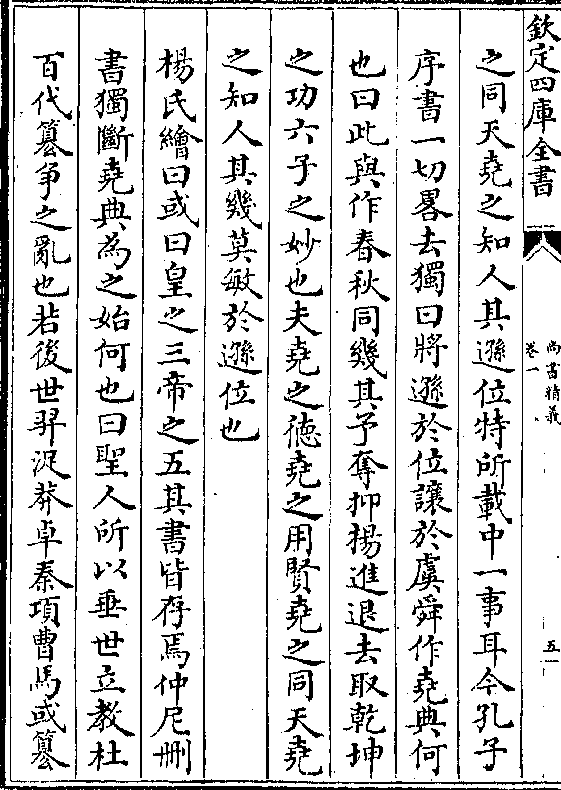 欽定四庫全書
尚書精義
卷一
五
之同天堯之知人其遜位特所載中一事耳今孔子
序書一切畧去獨曰將遜於位讓於虞舜作堯典何
也曰此與作春秋同幾其予奪抑揚進退去取乾坤
之功六子之妙也夫堯之徳堯之用賢堯之同天堯
之知人其幾莫敏於遜位也
楊氏繪曰或曰皇之三帝之五其書皆存焉仲尼刪
書獨斷堯典為之始何也曰聖人所以垂世立教杜
百代簒爭之亂也若後世羿浞莽卓秦項曹馬或簒